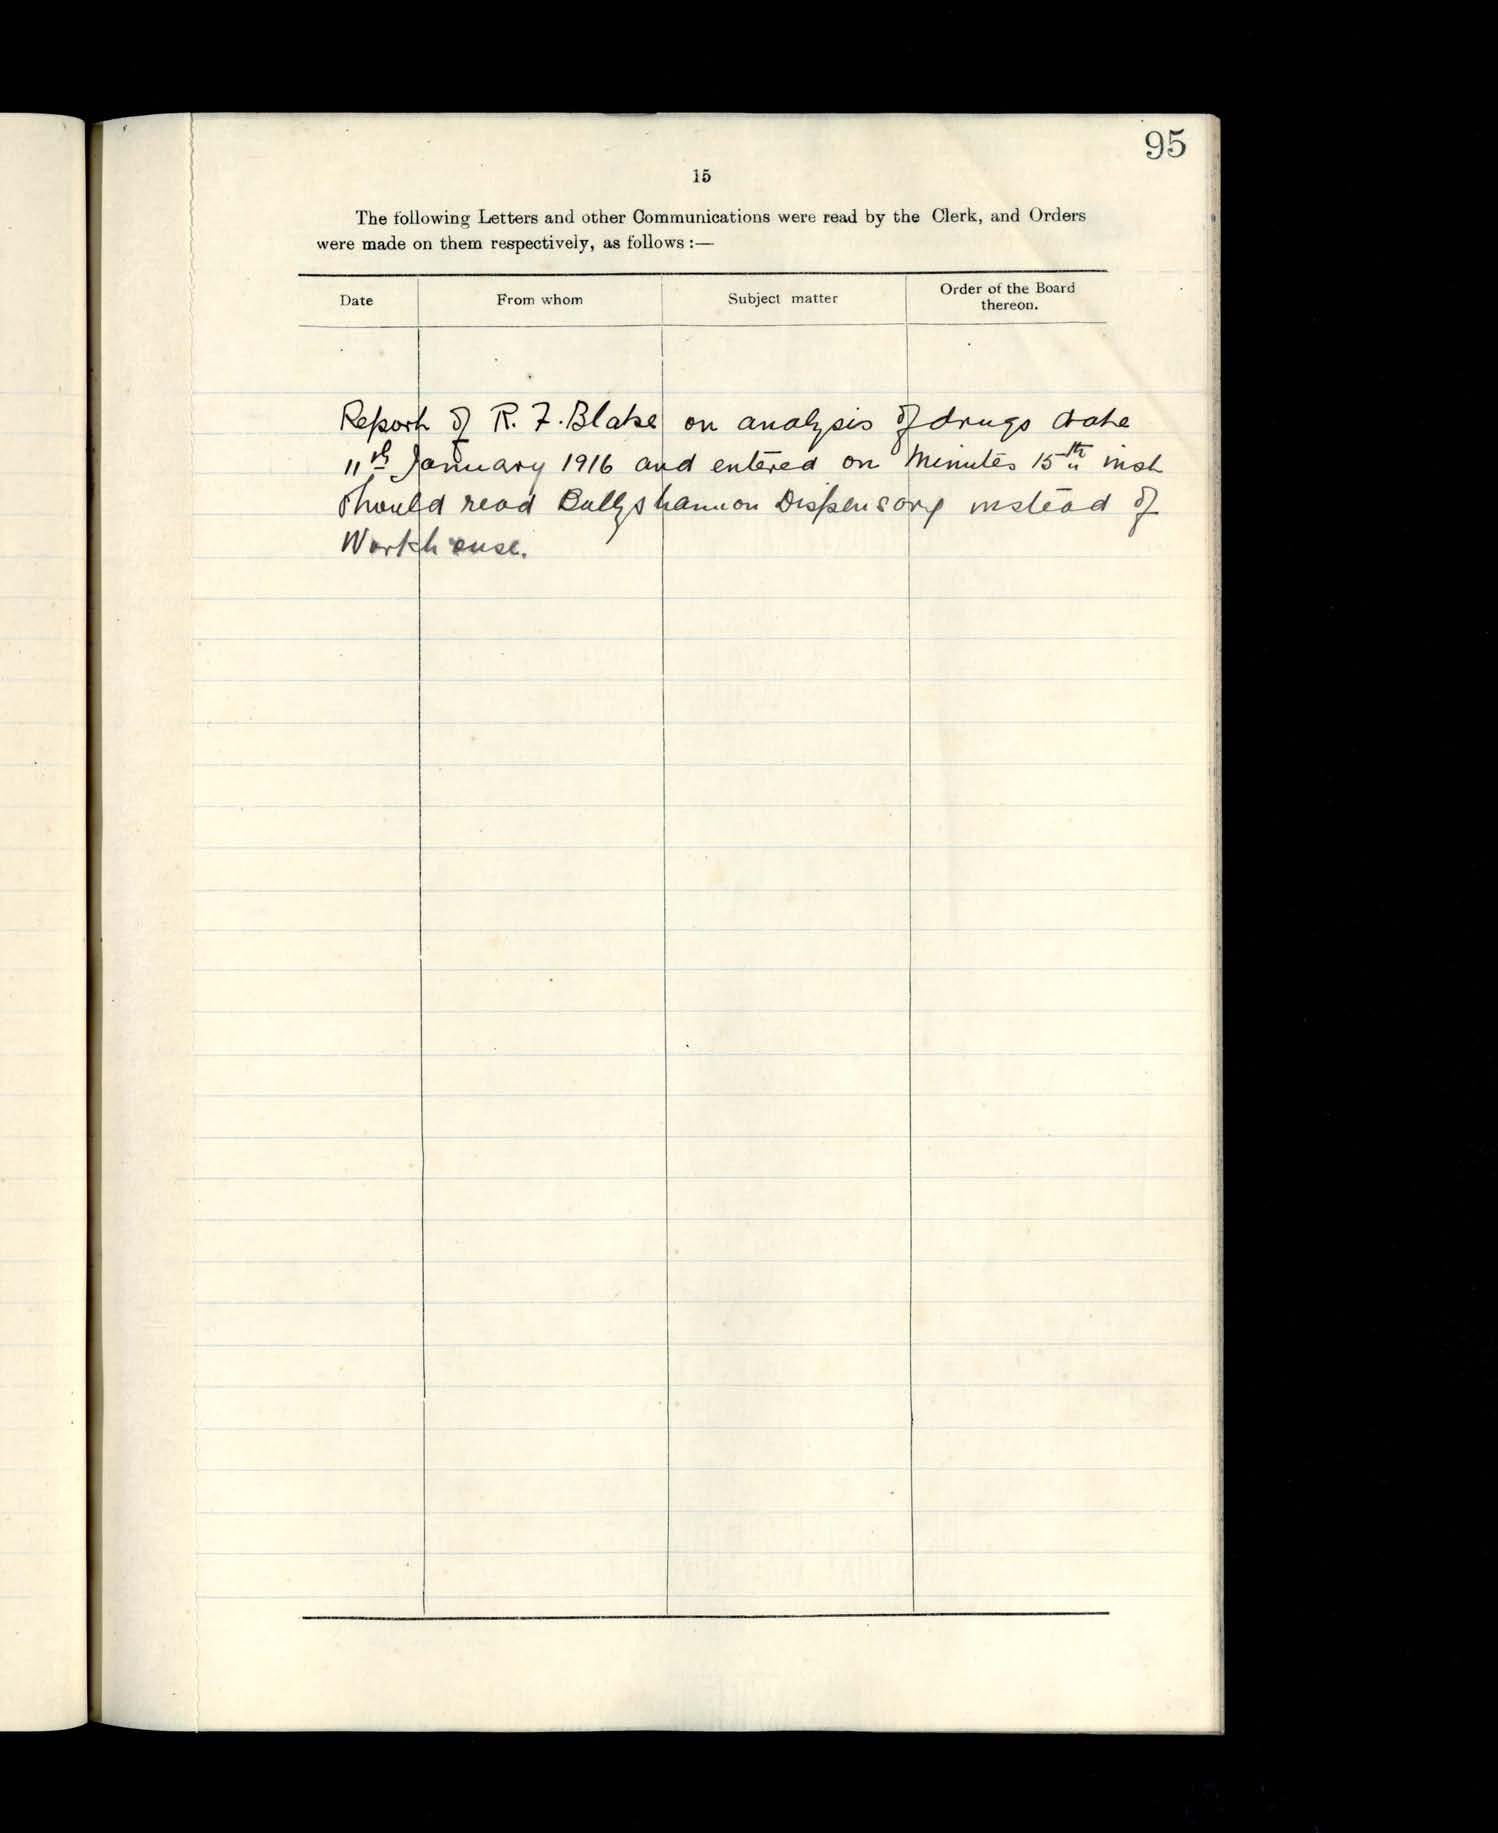 95
15
The following Letters and other Communications were read by the Clerk, and Orders
were made on them respectively, as follows :—
Date From whom Subject matter Order of the Board thereon.
Report of R. F. Blake on analysis of drugs date
11th January 1916 and entered on Minutes 15th inst
should read Ballyshannon Dispensary instead of
Workhouse.